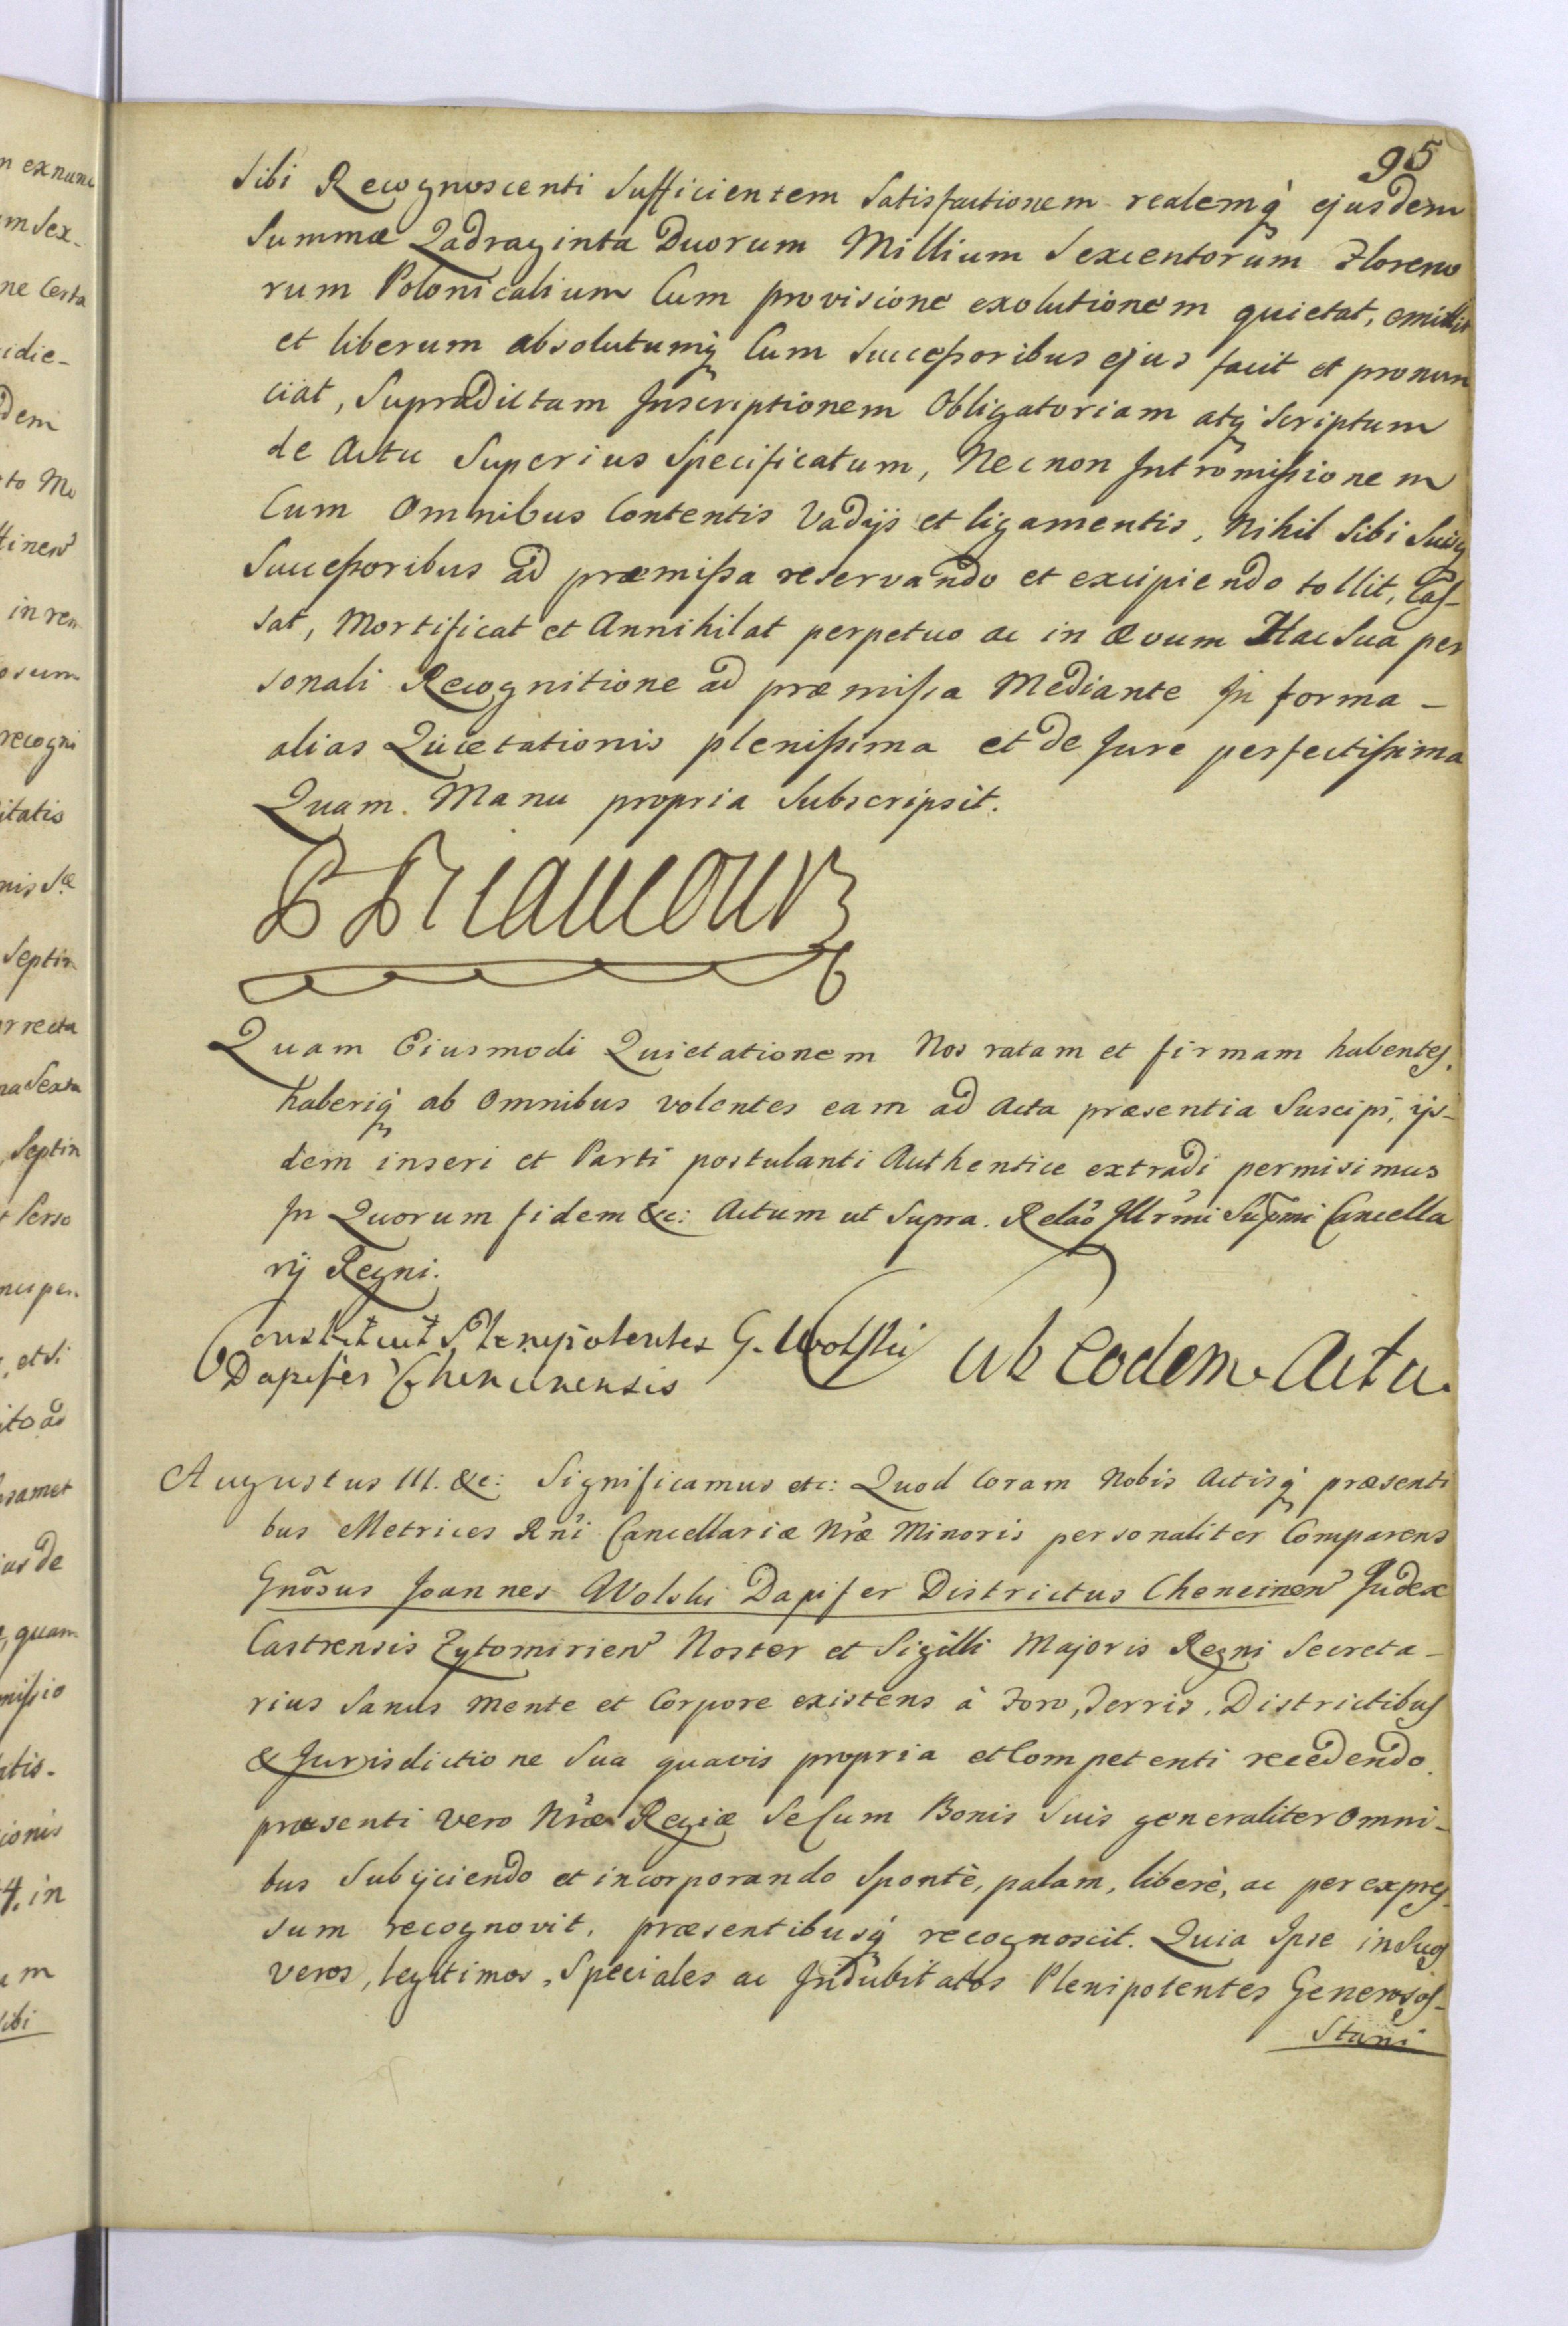 95
Sibi Recognoscenti Sufficientem Satisfactionem realemq́ ejusdem
Summæ Qadraginta Duorum Millium Sexcentorum Floreno
rum Polonicalium Cum provisione exolutionem quietat, emittit
et liberum absolutumq́ Cum Successoribus ejus facit et pronun
ciat, Supradictam Inscriptionem Obligatoriam atq́ Scriptum
de Actu Superius Specificatum, Necnon Intromissionem
Cum Omnibus Contentis Vadijs et ligamentis, Nihil Sibi Suisq́
Successoribus ad præmissa reservando et excipiendo tollit, Cas-
sat, Mortificat et Annihilat perpetuo ac in ævum Hac Sua per
sonali Recognitione ad præmissa Mediante In forma -
alias Quietationis plenissima et de Jure perfectissima
Quam Manu propria Subscripsit.
Quam Eiusmodi Quietationem Nos ratam et firmam habentes,
haberiq́ ab Omnibus volentes eam ad Acta præsentia Suscipi, ijs-
dem inseri et Parti postulanti Authentice extradi permisimus
In Quorum fidem &c: Actum ut Supra. Relaõ Illr̃mi Sup̃mi Cancella
rij Regni.
Constituit Plenipotentes G. Wolski
Dapifer Chencinensis
ab Eodem Actu.
Augustus III. &c: Significamus etc: Quod Coram Nobis Actisq́ præsenti
bus Metrices Rñi Cancellariæ Nr̃æ Minoris personaliter Comparens
Gnõsus Joannes Wolski Dapifer Districtus Chencinen̄ Judex
Castrensis Zytomirien̄ Noster et Sigilli Majoris Regni Secreta-
rius Sanus mente et Corpore existens à Foro, Terris, Districtibus
& Jurisdictione Sua quavis propria et Competenti recedendo.
præsenti vero Nr̃æ Regiæ Se Cum Bonis Suis generaliter Omni-
bus Subijciendo et incorporando Spontè, palam, liberè, ac per expres-
sum recognovit, præsentibusq́ recognoscit. Quia Ipse in Suos
veros, legitimos, Speciales ac Indubitatos Plenipotentes Generosos-
Stani